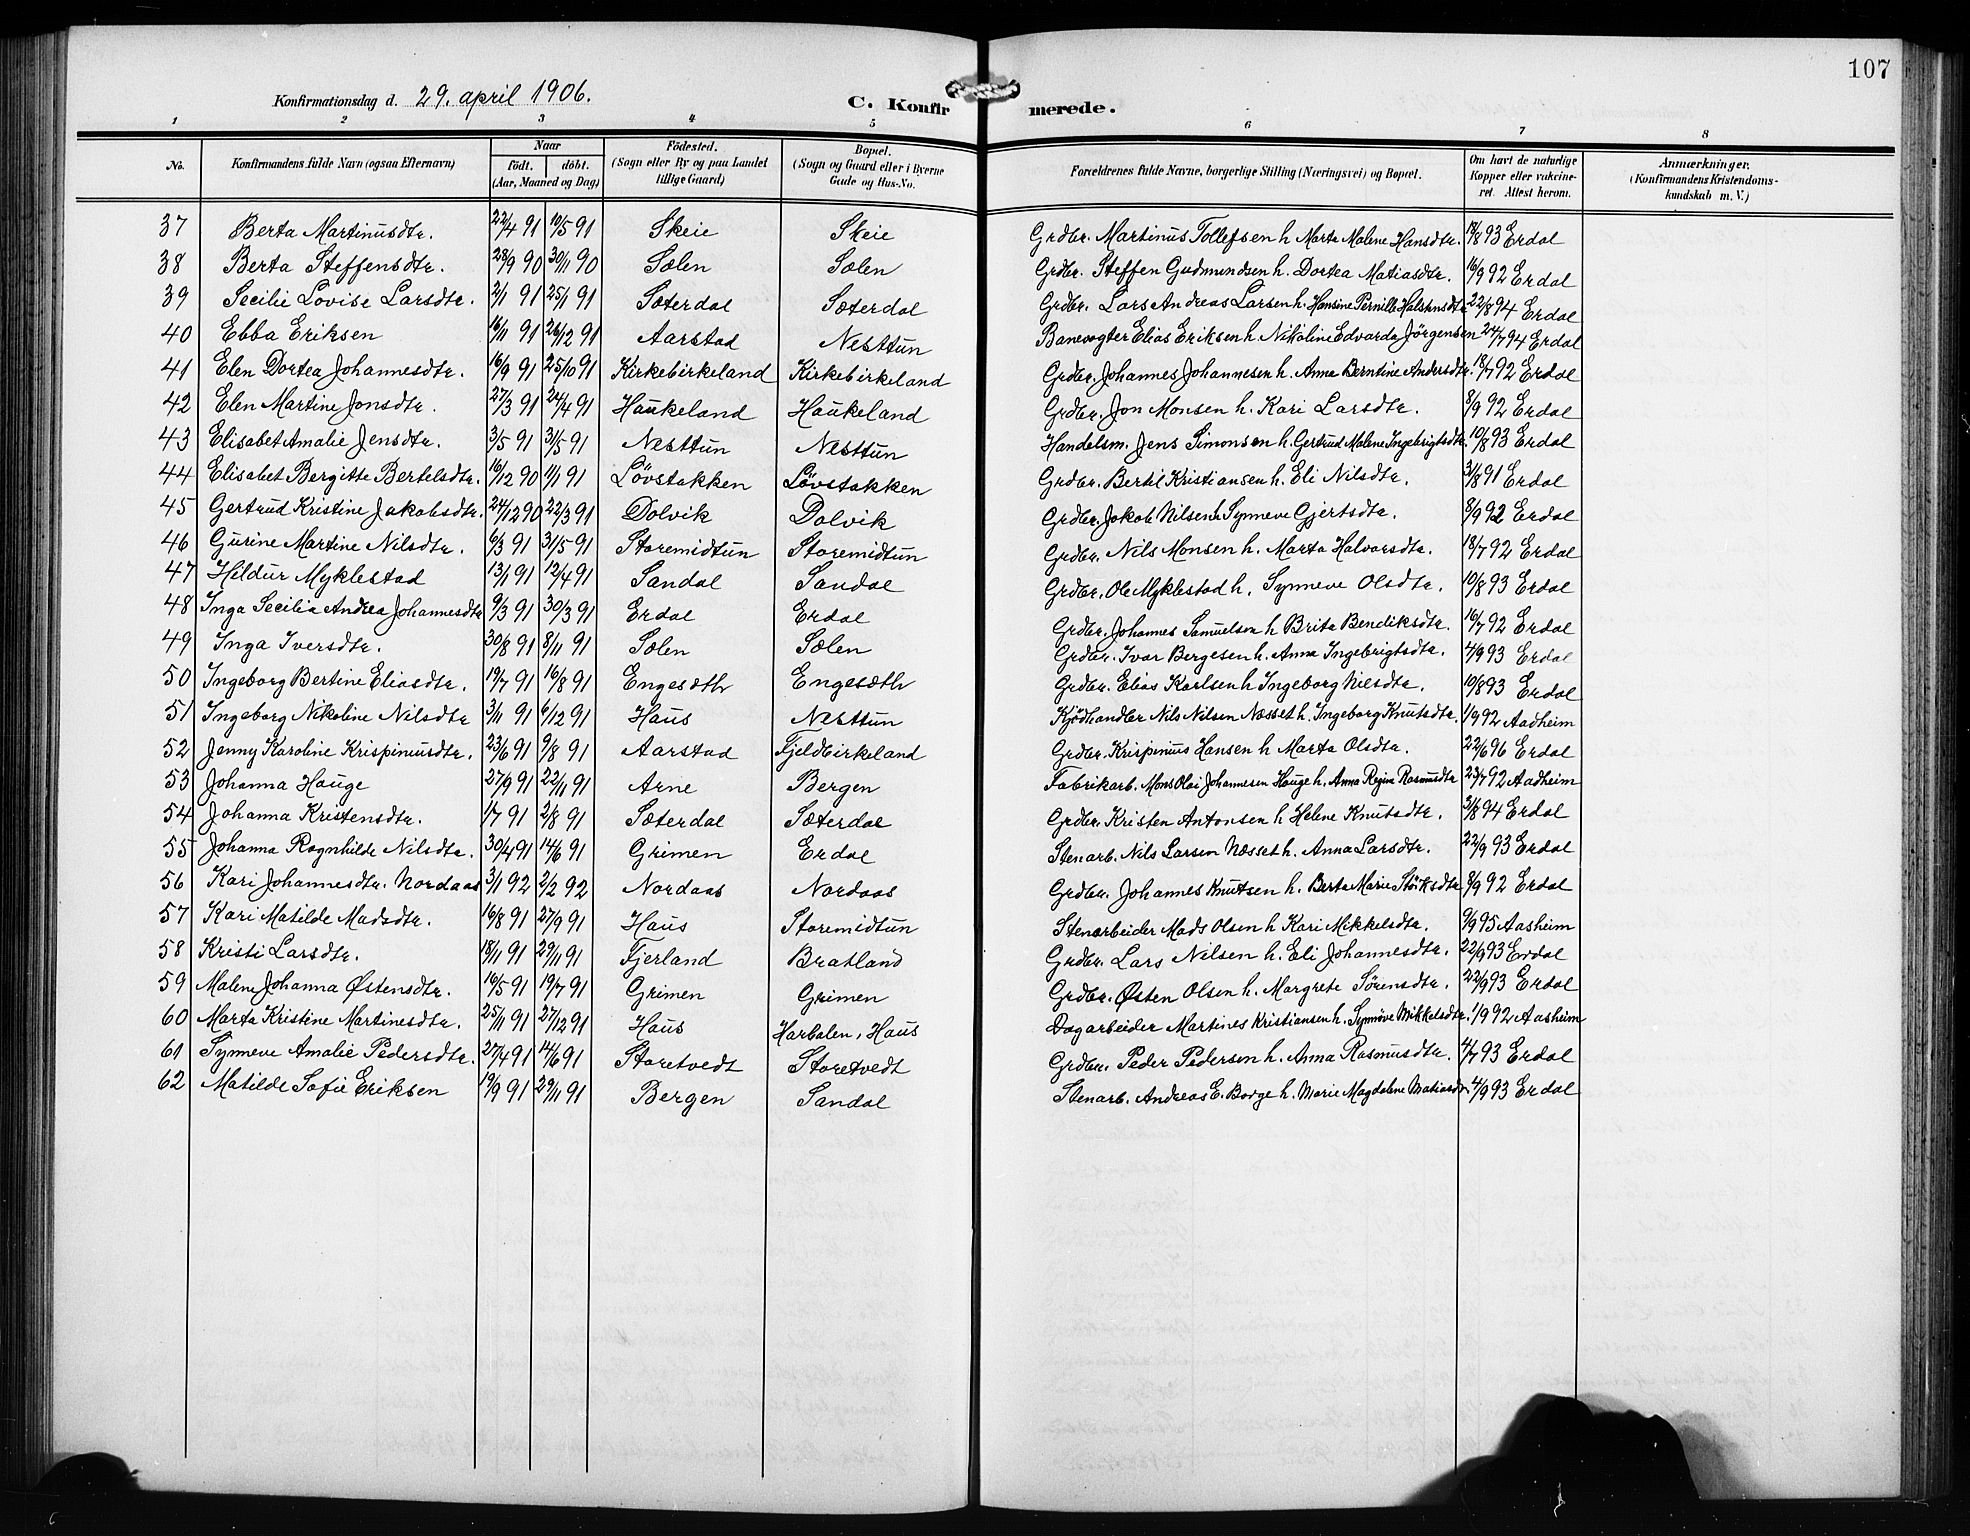 107
Konfirmationsdag d. 29. april 1906.
C. Konfirmerede.
1 2 3 4 5 6 7 8
No. Konfirmandens fulde Navn (ogsaa Efternavn) Naar födt. döbt. (Aar, Maaned og Dag) Födested. (Sogn eller By og paa Landet tillige Gaard) Bopæl. (Sogn og Gaard eller i Byerne Gade og Hus-No. Forældrenes fulde Navne, borgerlige Stilling (Næringsvei) og Bopæl. Om havt de naturlige Kopper eller vakcineret. Attest herom. Anmærkninger. (Konfirmandens Kristendomskundskab m. V.)
37 Berta Martinusdtr. 22/4 91 10/5 91 Skeie Skeie Grdbr. Martinus Tollefsen h. Marta Malene Hansdtr. 18/8 93 Erdal
38 Berta Steffensdtr. 28/9 90 30/11 90 Sælen Sælen Grdbr. Steffen Gudmundsen h. Dortea Matiasdtr. 16/9 92 Erdal
39 Secilie Lovise Larsdtr. 2/1 91 25/1 91 Sæterdal Sæterdal Grdbr. Lars Andreas Larsen h. Hansine Pernille Halstensdtr 22/8 94 Erdal
40 Ebba Eriksen 16/11 91 26/12 91 Aarstad Nesttun Banevogter Elias Eriksen h. Nikoline Edvarda Jörgensen 24/7 94 Erdal
41 Elen Dortea Johannesdtr. 16/9 91 25/10 91 Kirkebirkeland Kirkebirkeland Grdbr. Johannes Johannesen h. Anna Berntine Andersdtr. 18/7 92 Erdal
42 Elen Martine Jonsdtr. 27/3 91 24/4 91 Haukeland Haukeland Grdbr. Jon Monsen h. Kari Larsdtr. 8/9 92 Erdal
43 Elisabet Amalie Jensdtr. 3/5 91 31/5 91 Nesttun Nesttun Handelsm. Jens Simonsen h. Gertrud Malene Ingebrigtsdtr. 10/8 93 Erdal
44 Elisabet Bergitte Bertelsdtr. 16/12 90 11/1 91 Lövstakken Lövstakken Grdbr. Bertil Kristiansen h. Eli Nilsdtr. 31/8 91 Erdal
45 Gertrud Kristine Jakobsdtr. 24/12 90 22/3 91 Dolvik Dolvik Grdbr. Jakob Nilsen h Synneve Gjertsdtr. 8/9 92 Erdal
46 Gurine Martine Nilsdtr. 6/3 91 31/5 91 Storemidtun Storemidtun Grdbr. Nils Monsen h. Marta Halvorsdtr. 18/7 92 Erdal
47 Hildur Myklestad 13/1 91 12/4 91 Sandal Sandal Grdbr. Ole Myklestad h. Synneve Olsdtr. 10/8 93 Erdal
48 Inga Secilia Andrea Johannesdtr 9/3 91 30/3 91 Erdal Erdal Grdbr. Johannes Samuelsen h Brita Bendiksdtr. 16/7 92 Erdal
49 Inga Iversdtr. 30/8 91 8/11 91 Sælen Sælen Grdbr. Ivar Bergesen h. Anna Ingebrigtsdtr. 4/9 93 Erdal
50 Ingeborg Bertine Eliasdtr. 19/7 91 16/8 91 Engesæth Engesæth Grdbr. Elias Karlsen h Ingeborg Nilsdtr. 10/8 93 Erdal
51 Ingeborg Nikoline Nilsdtr 3/11 91 6/12 91 Haus Nesttun Kjödhandler Nils Nilsen Næsset h. Ingeborg Knutsdtr. 1/9 92 Aadheim
52 Jenny Karoline Krispinusdtr. 23/6 91 9/8 91 Aarstad Fjeldbirkeland Grdbr. Krispinius Hansen h Marta Olsdtr. 22/6 96 Erdal
53 Johanna Hauge 27/9 91 22/11 91 Arne Bergen Fabrikarb. Mons Olai Johannesen Hauge h. Anna Regine Rasmusdtr 23/7 92 Aadheim
54 Johanna Kristensdtr. 1/7 91 2/8 91 Sæterdal Sæterdal Grdbr. Kristen Antonsen h Helene Knutsdtr. 31/8 94 Erdal
55 Johanna Ragnhilde Nilsdtr. 30/4 91 14/6 91 Grimen Erdal Stenarb. Nils Larsen Næsset h. Anna Larsdtr. 22/9 93 Erdal
56 Kari Johannesdtr. Nordaas 3/1 92 2/2 92 Nordaas Nordaas Grdbr. Johannes Knutsen h. Berta Marie Störksdtr 8/9 92 Erdal
57 Kari Matilde Madsdtr. 16/8 91 27/9 91 Haus Storemidtun Stenarbeider Mads Olsen h Kari Mikkelsdtr. 9/9 95 Aasheim
58 Kristi Larsdtr. 18/11 91 29/11 91 Fjerland Bratland Grdbr. Lars Nilsen h. Eli Johannesdtr. 22/9 93 Erdal
59 Malene Johanna Østensdtr. 16/5 91 19/7 91 Grimen Grimen Grdbr. Østen Olsen h. Margrete Sörensdtr. 22/9 93 Erdal
60 Marta Kristine Martinesdtr. 25/11 91 27/12 91 Haus Harbalen, Haus Dagarbeider Martines Kristiansen h. Synnöve Mikkelsdtr. 1/9 92 Aasheim
61 Synneve Amalie Pedersdtr. 27/4 91 14/6 91 Storetvedt Storetvedt Grdbr. Peder Pedersen h. Anna Rasmusdtr. 4/7 93 Erdal
62 Matilde Sofie Eriksen 19/9 91 29/11 91 Bergen Sandal Stenarb. Andreas E. Borge h. Marie Magdalene Matiasdtr 4/9 93 Erdal